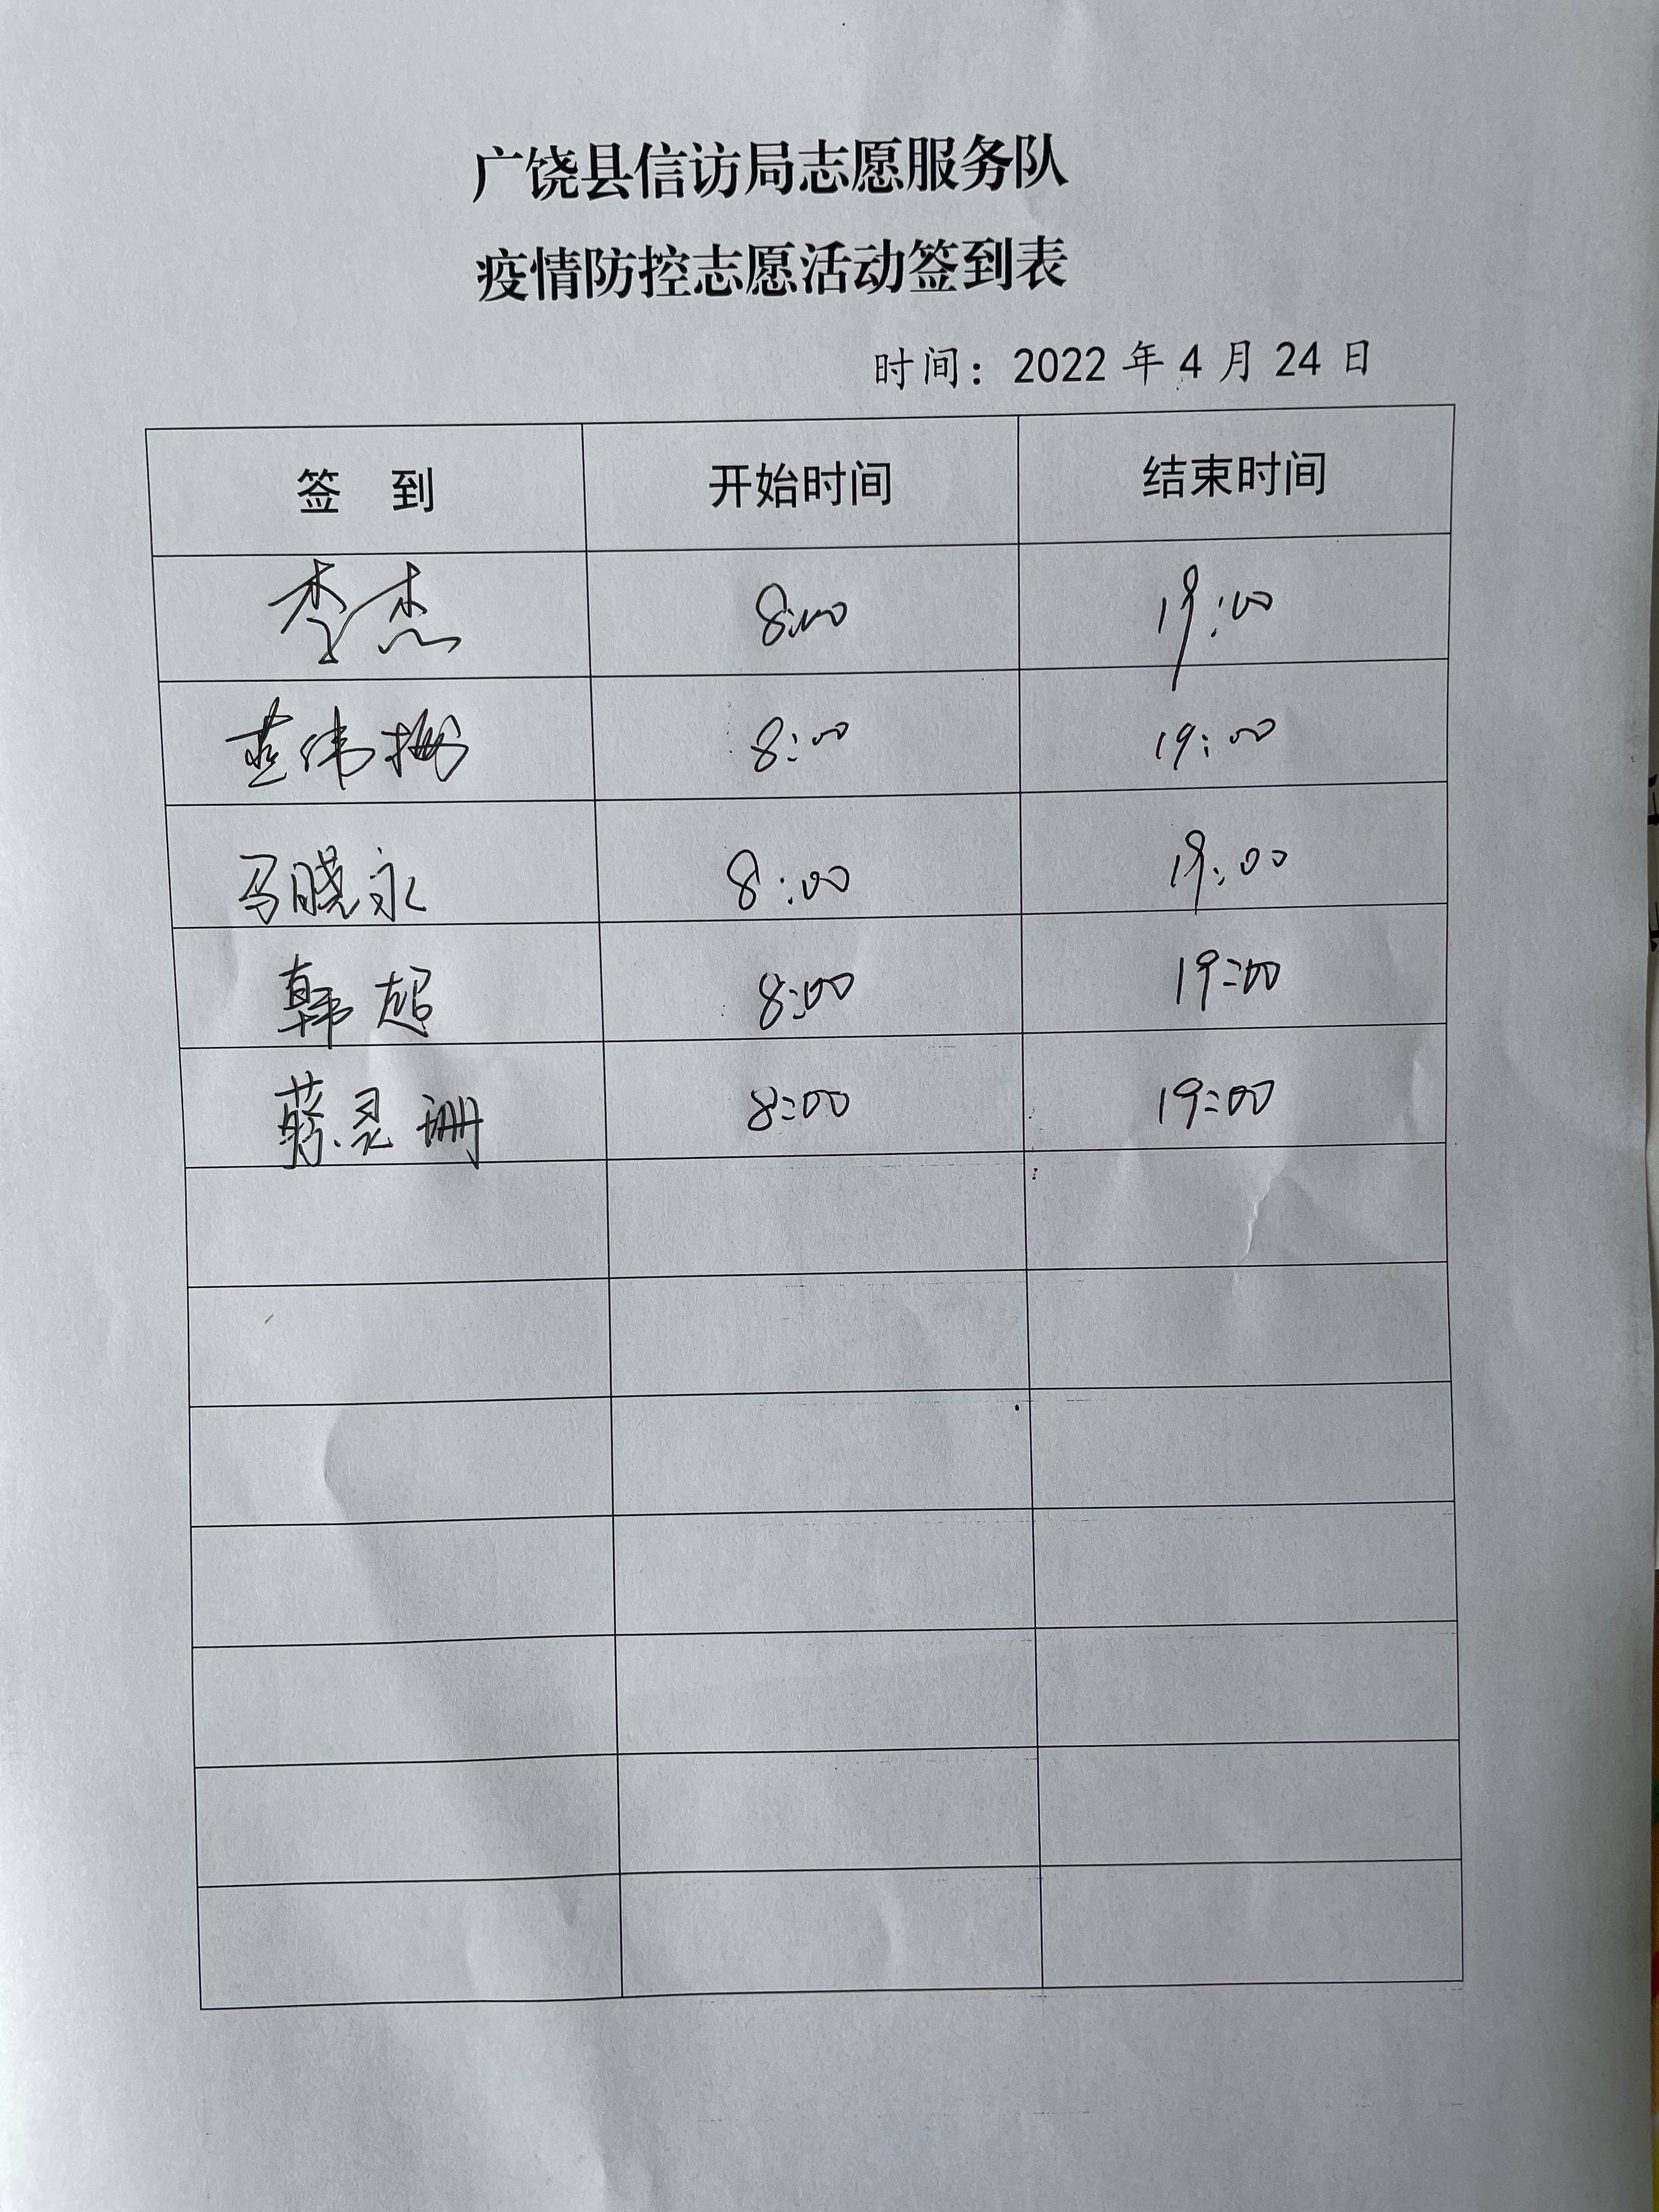 广饶县信访局志愿服务队
疫情防控志愿活动签到表
时间：2022 年 4 月 24 日
签 到 开始时间 结束时间
李杰 8:00 19:00
8:00 19:00
马晓永 8:00 19:00
韩超 8:00 19:00
蒋灵珊 8:00 19:00